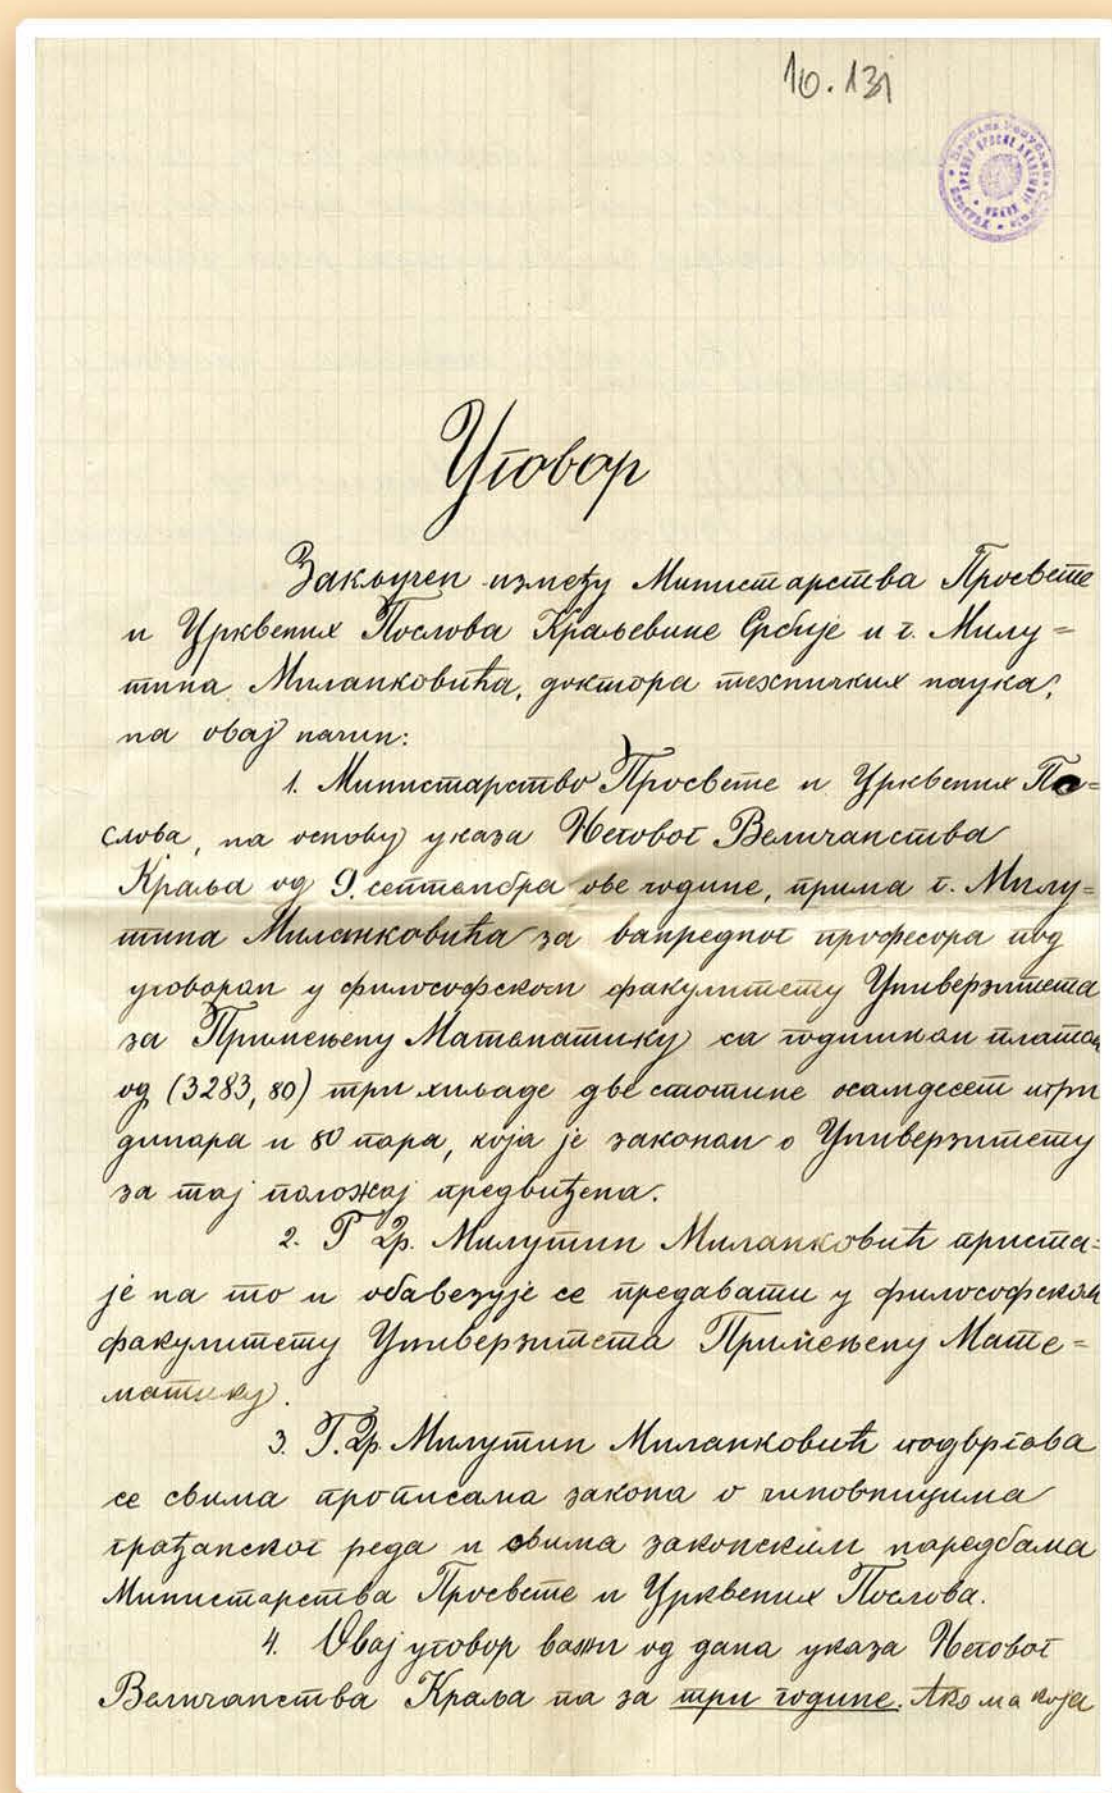 10.131
Уговор
Закључен између Министарства Просвете
и Црквених Послова Краљевине Србије и г. Милу=
тина Миланковића, доктора техничких наука,
на овај начин:
1. Министарство Просвете и Црквених По=
слова, на основу указа Његовог Величанства
Краља од 9. септембра ове године, прима г. Милу=
тина Миланковића за ванредног професора под
уговором у философском факултету Универзитета
за Примењену Математику са годишњом платом
од (3283, 80) три хиљаде две стотине осамдесет и три
динара и 80 пара, која је законом о Универзитету
за тај положај предвиђена.
2. Г Др. Милутин Миланковић приста=
је на то и обавезује се предавати у философском
факултету Универзитета Примењену Мате=
матику.
3. Г. Др. Милутин Миланковић подвргава
се свима прописама закона о чиновницима
грађанског реда и свима законским наредбама
Министарства Просвете и Црквених Послова.
4. Овај уговор важи од дана указа Његовог
Величанства Краља па за три године. Ако ма која